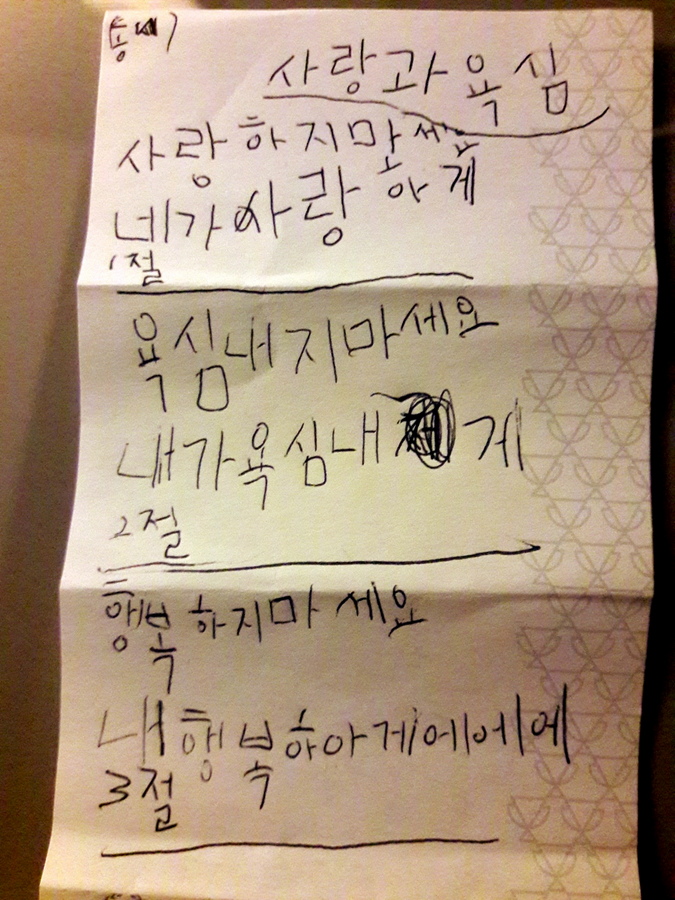 사랑과욕심
사랑하지마세요
네가사랑하게
1절
욕심내지마세요
내가욕심내게
2절
행복하지마세요
내행복하아게에에에
3절